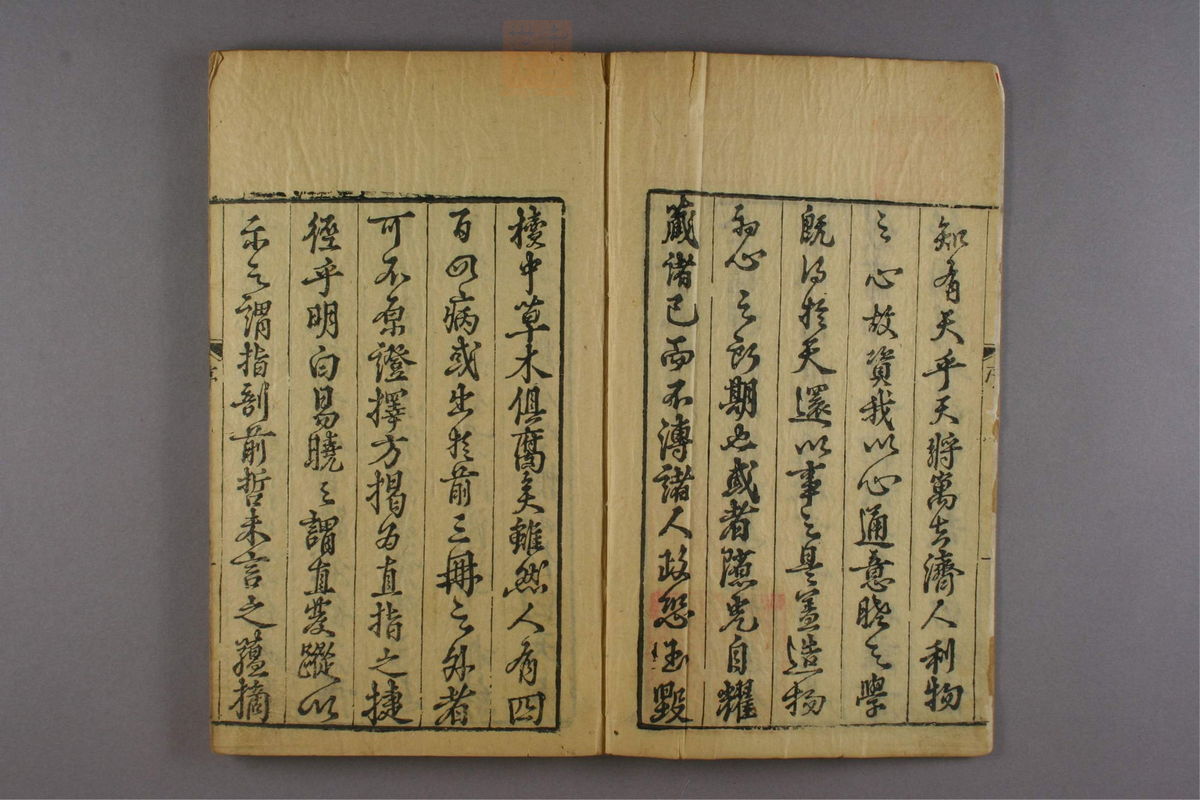 知有天乎天將寓吾濟人利物
之心故資我以心通意曉之學
既得於天還以事之是蓋造物
初心之所期也或者隱兇自耀
藏諸已而不溥諸人政恐玉毀
櫝中草木俱腐矣雖然人有四
百四病或出於前三冊之外者
可不原證擇方揭為直指之捷
徑乎明白易曉之謂直發蹤以
示之謂指剖前哲未言之蘊摘